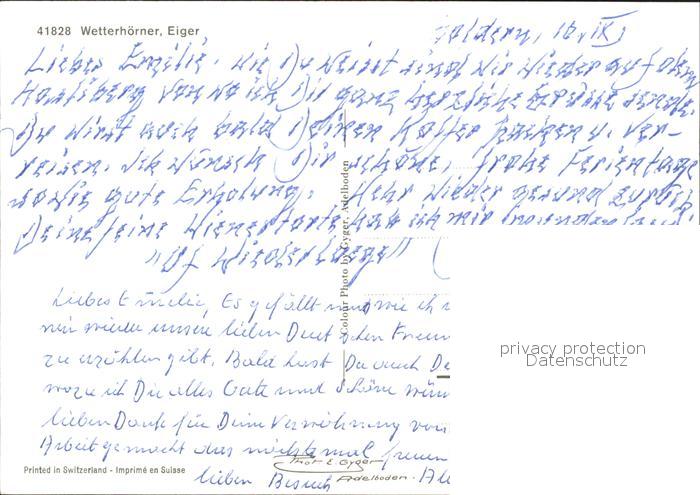 41828 Wetterhörner, Eiger
Goldern, 10. IX
Liebes Emilie, wie Du weisst sind wir wieder auf dem
Hasliberg von wo ich Dir ganz herzliche Grüsse sende.
Du wirst auch bald Deinen Koffer packen u. ver-
reisen. Ich wünsch Dir schöne, frohe Ferientage
sowie gute Erholung. Kehr wieder gesund zurück
Deine feine Wienertorte hab ich mir
"Uf Wiederluege"
Liebes Emilie, Es gefällt uns wie ich
wieder unsere lieben Deutschen Freun
zu erzählen gibt. Bald hast Du auch De
wozu ich Dir alles Gute und schöne wün
lieben Dank für Deine Verwöhnung
Arbeit gemacht das nächste mal freuen
lieben Besuch
Colour Photo by Gyger, Adelboden
Phot E. Gyger
Adelboden
Printed in Switzerland - Imprimé en Suisse
privacy protection
Datenschutz